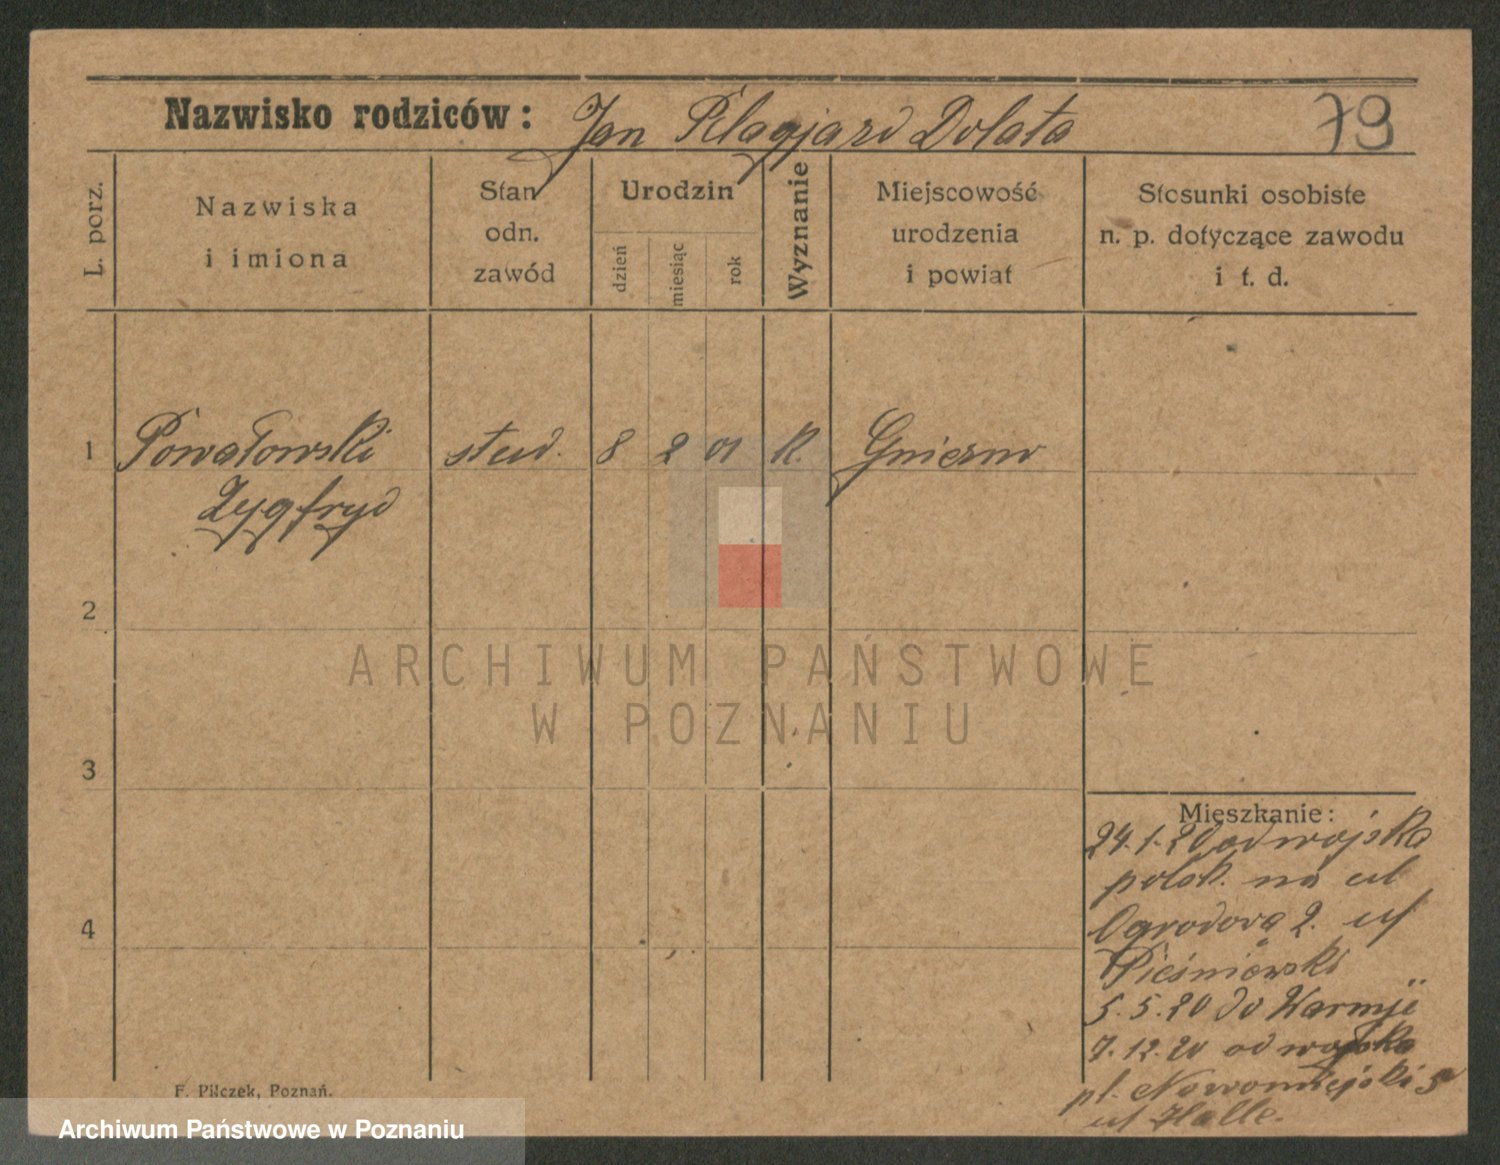 Nazwisko rodziców: Jan Dolata
79
L. porz.
Nazwiska
i imiona
Stan
odn.
zawód
Urodzin
dzień
miesiąc
rok
Wyznanie
Miejscowość
urodzenia
i powiat
Stosunki osobiste
n. p. dotyczące zawodu
i t. d.
1 Powałowski stud. 8 2 01 R. Gniezno
Zygfryd
2
3
4
ARCHIWUM PAŃSTWOWE
W POZNANIU
Mieszkanie:
24.1.20 od wojska
polsk. na ul
Ogrodową 2.
5.5.20 do Warmji
7.12.20 od wojska
pl. Nowomiejski 5
F. Pilczek, Poznań.
Archiwum Państwowe w Poznaniu